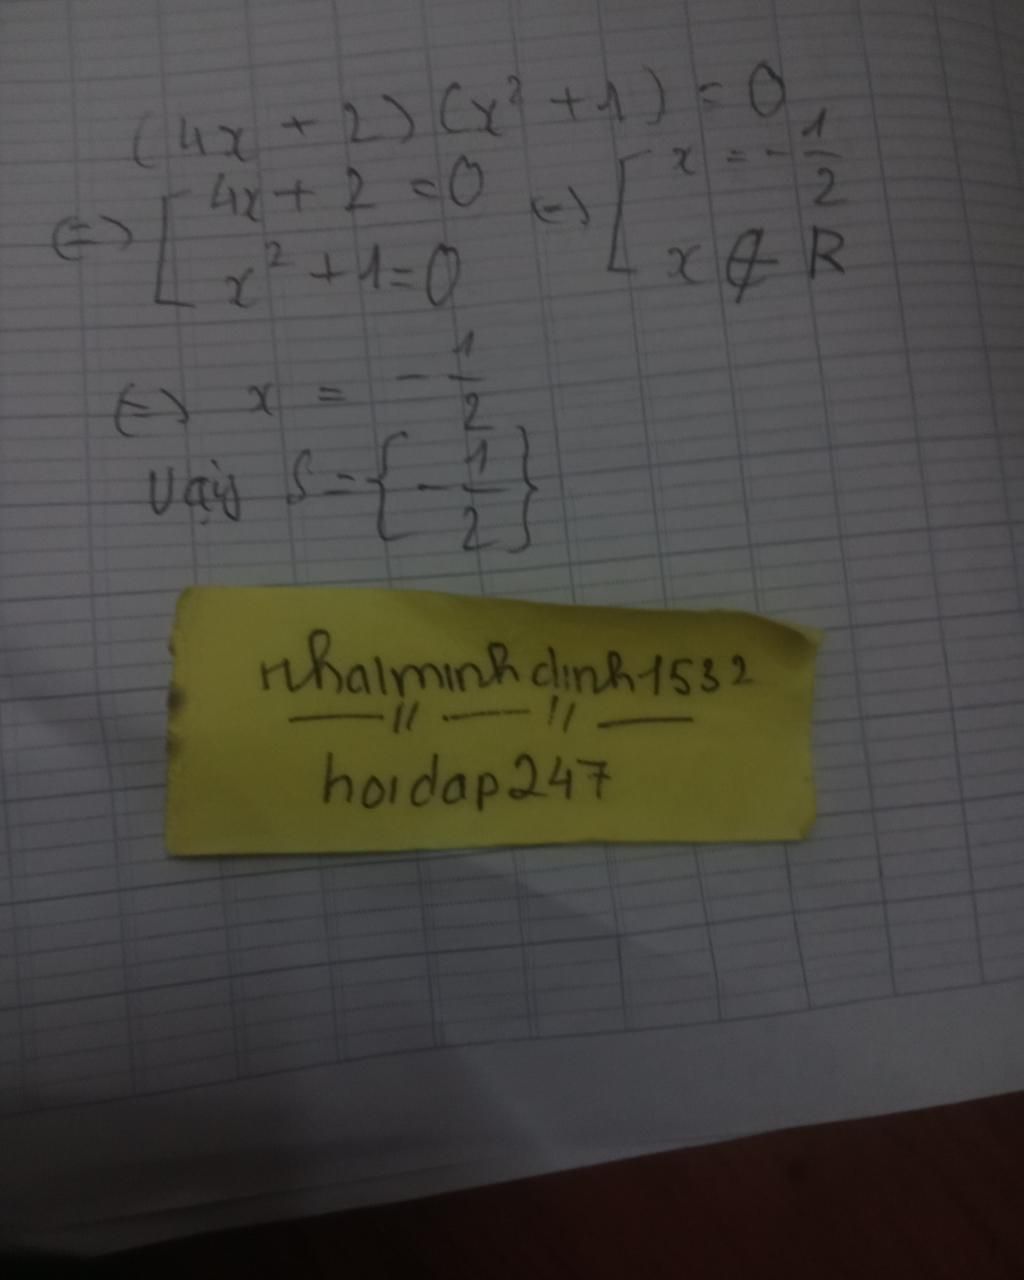 (4x + 2) (x² + 1) = 0
⇔ [ 4x + 2 = 0 ⇔ [ x = -1/2
x² + 1 = 0 x ∉ R
⇔ x = -1/2
Vậy S = {-1/2}
nhalminhdinh1532
hoidap247